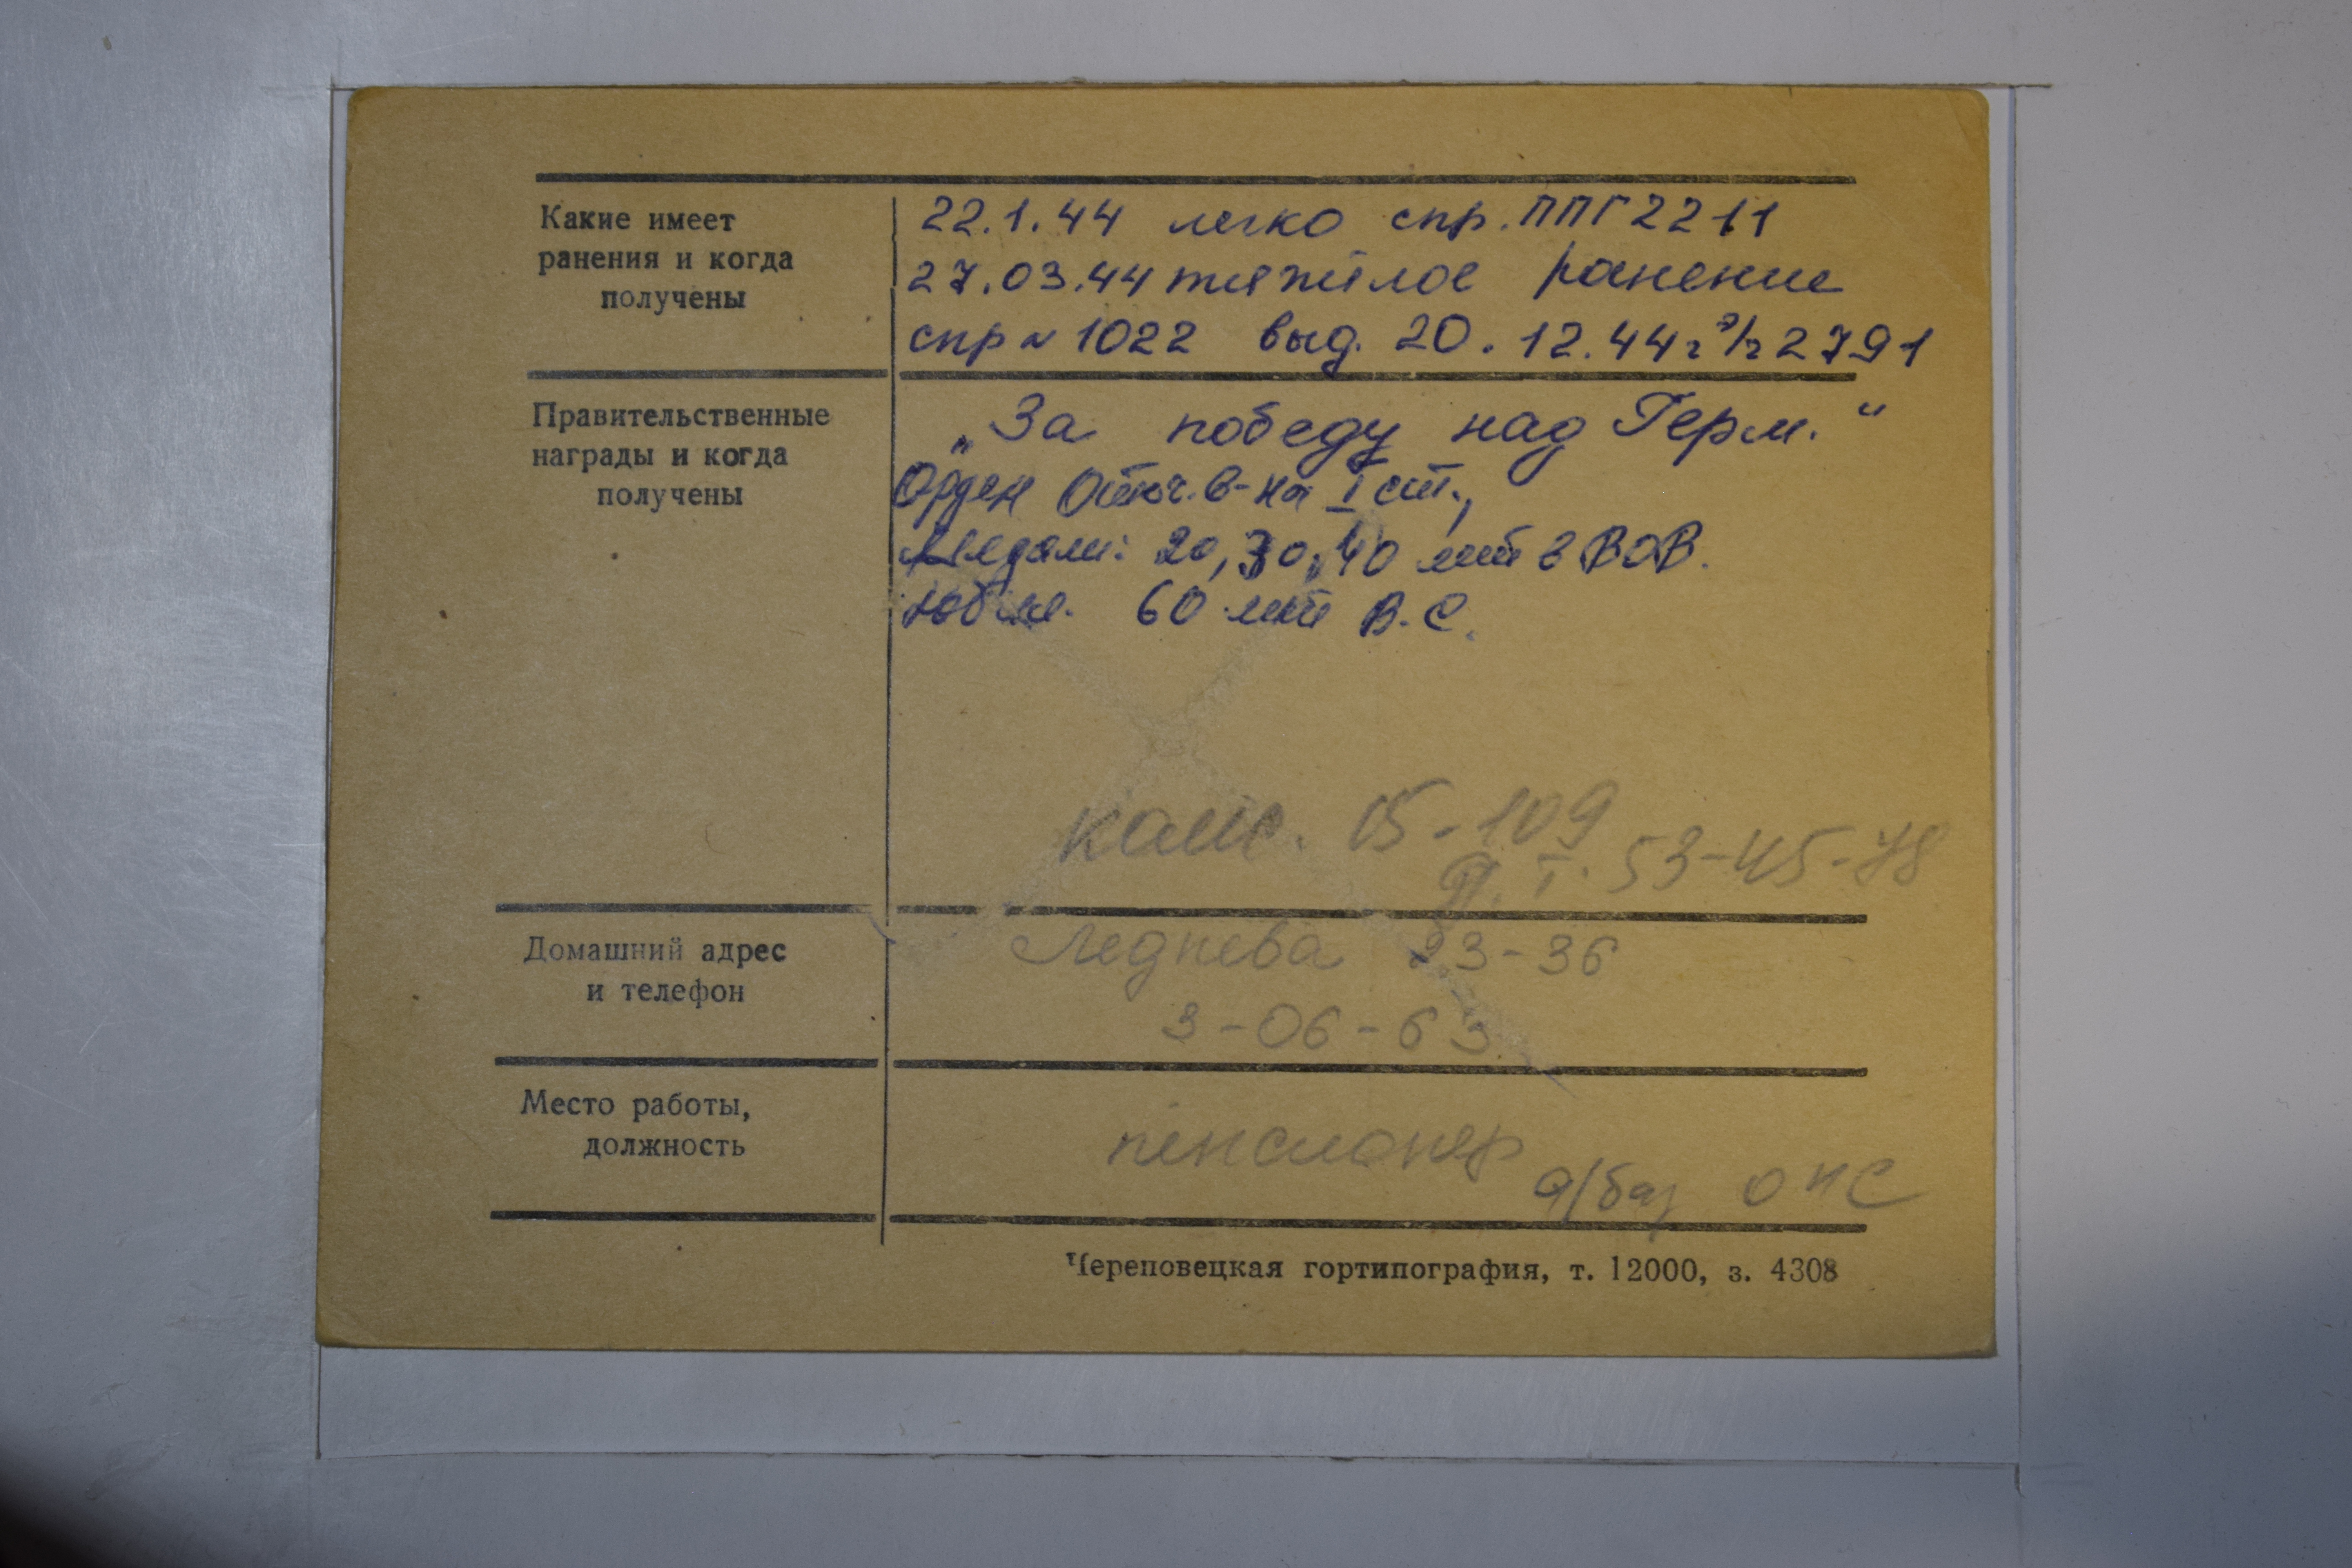 Какие имеет
ранения и когда
получены
22.1.44 легко спр. ППГ 2211
27.03.44 тяжёлое ранение
спр № 1022 выд. 20.12.44 г э/г 2791
Правительственные
награды и когда
получены
„За победу над Герм.“
Орден Отеч. в-на I ст.,
Медали: 20, 30, 40 лет в ВОВ.
юбил. 60 лет В.С.
15-109
П. Т. 53-45-78
Домашний адрес
и телефон
Леднева 23-36
3-06-63
Место работы,
должность
пенсионер
а/баз ОПС
Череповецкая гортипография, т. 12000, з. 4308